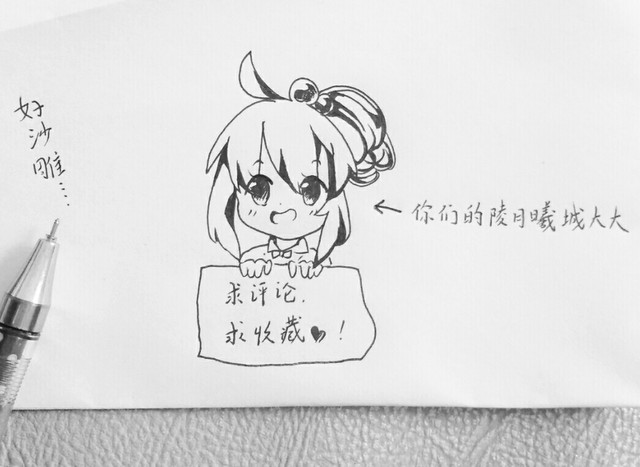 好沙雕……
←你们的陵月曦城大大
求评论.
求收藏♥!